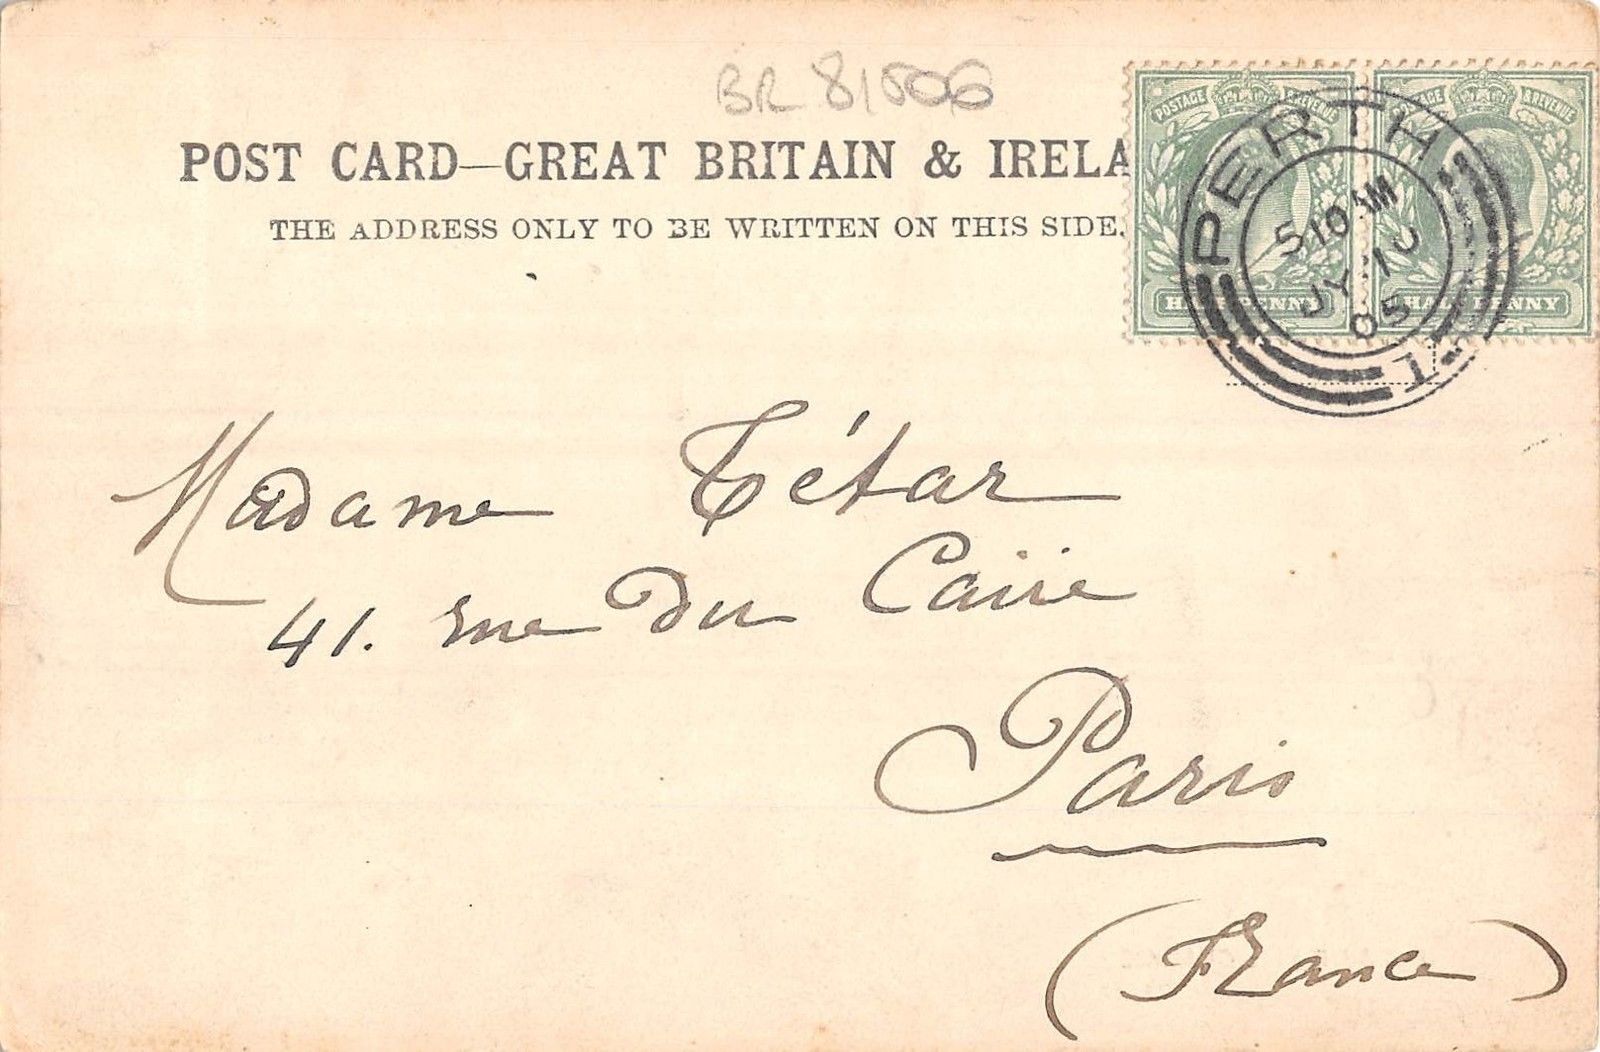 BR 81506
POST CARD—GREAT BRITAIN & IRELA
THE ADDRESS ONLY TO BE WRITTEN ON THIS SIDE.
POSTAGE & REVENUE
HALFPENNY
POSTAGE & REVENUE
HALFPENNY
PERTH
5 10 AM
JY 10
05
1
Madame Tétar
41. rue du Caire
Paris
(France)